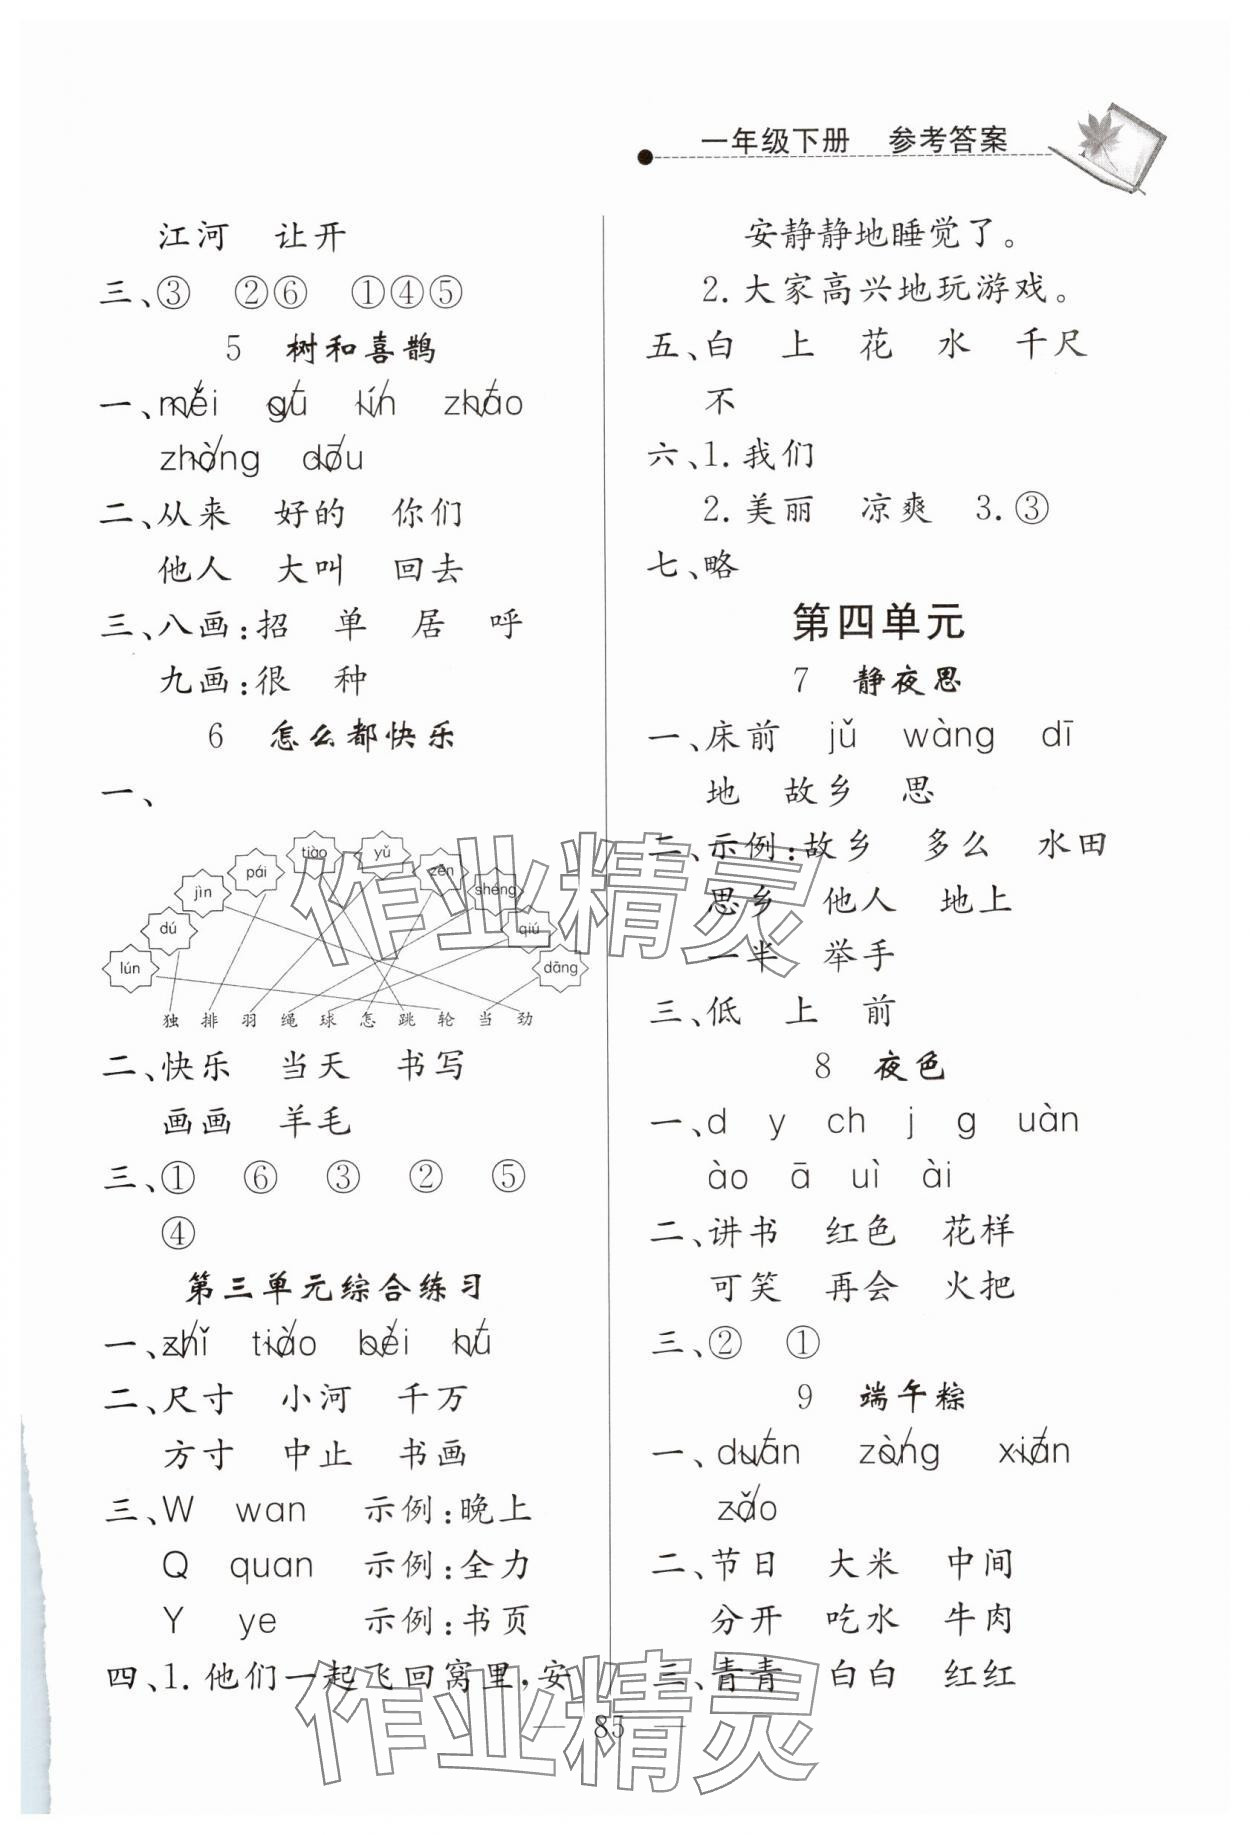 一年级下册 参考答案
江河 让开
三、③ ②⑥ ①④⑤
5 树和喜鹊
一、méi gū lín zhāo
zhòng dōu
二、从来 好的 你们
他人 大叫 回去
三、八画:招 单 居 呼
九画:很 种
6 怎么都快乐
一、
tiào yǔ
pái zěn
jìn shéng
dú qiú
lún dāng
独 排 羽 绳 球 怎 跳 轮 当 劲
二、快乐 当天 书写
画画 羊毛
三、① ⑥ ③ ② ⑤
④
第三单元综合练习
一、zhǐ tiào bèi hū
二、尺寸 小河 千万
方寸 中止 书画
三、W wan 示例:晚上
Q quan 示例:全力
Y ye 示例:书页
四、1.他们一起飞回窝里,安
安静静地睡觉了。
2.大家高兴地玩游戏。
五、白 上 花 水 千尺
不
六、1.我们
2.美丽 凉爽 3.③
七、略
第四单元
7 静夜思
一、床前 jǔ wàng dī
地 故乡 思
二、示例:故乡 多么 水田
思乡 他人 地上
一半 举手
三、低 上 前
8 夜色
一、d y ch j g uàn
ào ā uì ài
二、讲书 红色 花样
可笑 再会 火把
三、② ①
9 端午粽
一、duān zòng xiān
zǎo
二、节日 大米 中间
分开 吃水 牛肉
三、青青 白白 红红
85
作业精灵
作业精灵